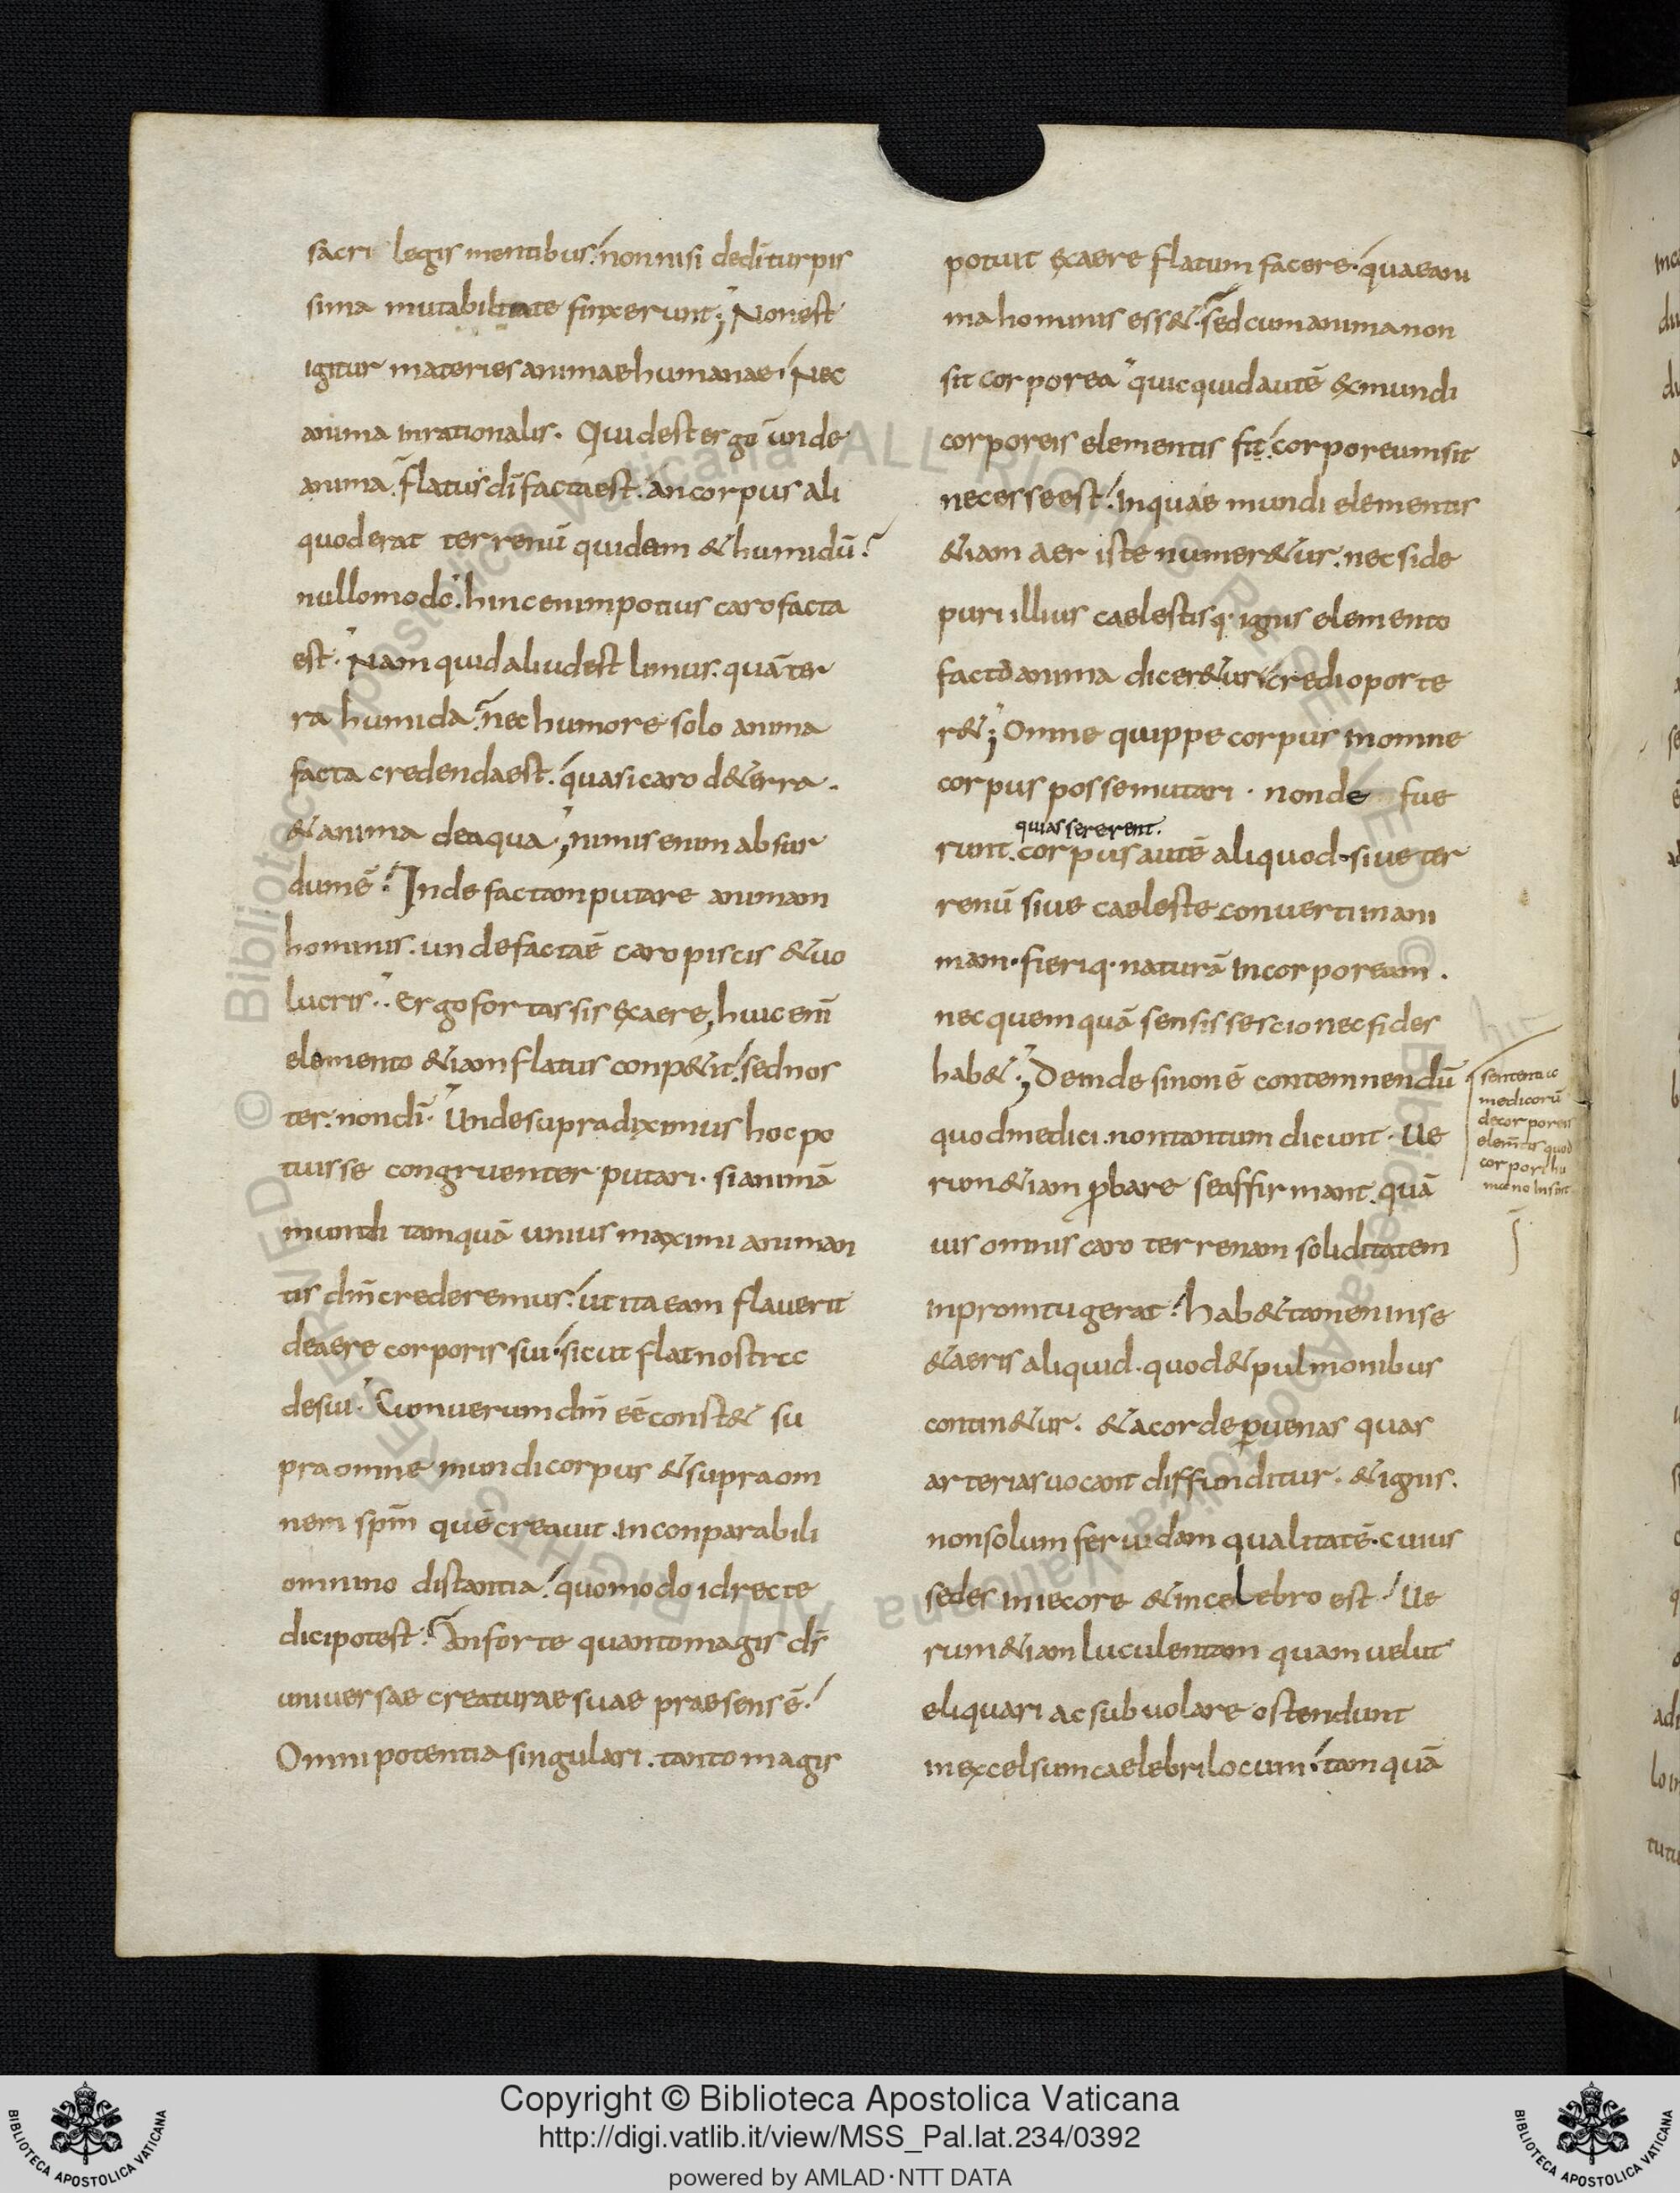 sacri legis mentibus. non nisi de dī turpis
sima mutabilitate finxerunt; Non est
igitur materies animae humanae. Nec
anima inrationalis. Quid est ergo unde
anima. flatus dī facta est. an corpus ali
quod erat terrenū quidem & humidū?
nullo modo. hinc enim potius caro facta
est. Nam quid aliud est limus. quā ter
ra humida. nec humore solo anima
facta credenda est. quasi caro d& erra.
& anima de aqua; nimis enim absur
dum ē. Inde factam putare animam
hominis. unde facta ē caro piscis & uo
lucris. Ergo fortassis ex aere, huic enī
elemento &iam flatus conp&it. sed nos
ter. non dī. Unde supra diximus hoc po
tuisse congruenter putari. si animā
mundi tamquā unius maximi animan
tis dm̄ crederemus. ut ita eam flauerit
de aere corporis sui. sicut flat nostrec
de sui. Cum uerum dm̄ eē const& su
pra omne mundi corpus & supra om
nem spm̄ quē creauit. inconparabili
omnino distantia. quomodo id recte
dici potest. An forte quanto magis ds̄
uniuersae creaturae suae praesens ē.
Omnipotentia singulari. tanto magis
potuit ex aere flatum facere. quae ani
ma hominis ess&. sed cum anima non
sit corporea quicquid autē ex mundi
corporeis elementis fit. corporeum sit
necesse est. In quae mundi elementis
&iam aer iste numer&ur. nec si de
puri illius caelestisq· ignis elemento
facta anima dicer&ur. credi oporte
r&; Omne quippe corpus in omne
corpus posse mutari. non de fue
quias sererent.
runt. corpus autē aliquod. siue ter
renū siue caeleste conuerti in ani
mam. fieriq· naturā incorpoream.
nec quemquā sensisse scio nec fides
hab&; Deinde si non ē contemnendū
quod medici. non tantum dicunt. Ue
rum &iam probare se affirmant. quā
uis omnis caro terrenam soliditatem
in promtu gerat. hab& tamen in se
& aeris aliquid. quod & pulmonibus
contin&ur. & a corde per uenas quas
arterias uocant diffunditur. & ignis.
non solum feruidam qualitatē. cuius
sedes in iecore & in celebro est. Ue
rum &iam luculentam quam uelut
eliquari ac subuolare ostendunt
in excelsum caelebri locum. tamquā
sententia
medicorū
de corporeis
elem̄tis quod
corpori hu
mano insint